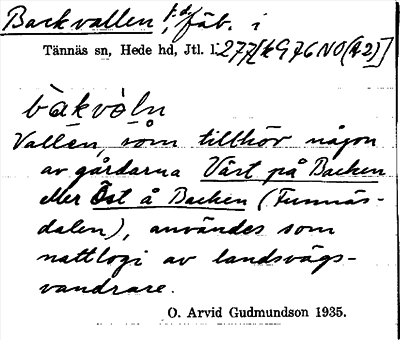 Backvallen, f.d. fäb. i
Tännäs sn, Hede hd, Jtl. l.
bàkvòln
Vallen, som tillhör någon
av gårdarna Väst på Backen
eller Öst å Backen (Funnäs-
dalen), användes som
nattlogi av landsvägs-
vandrare.
O. Arvid Gudmundson 1935.